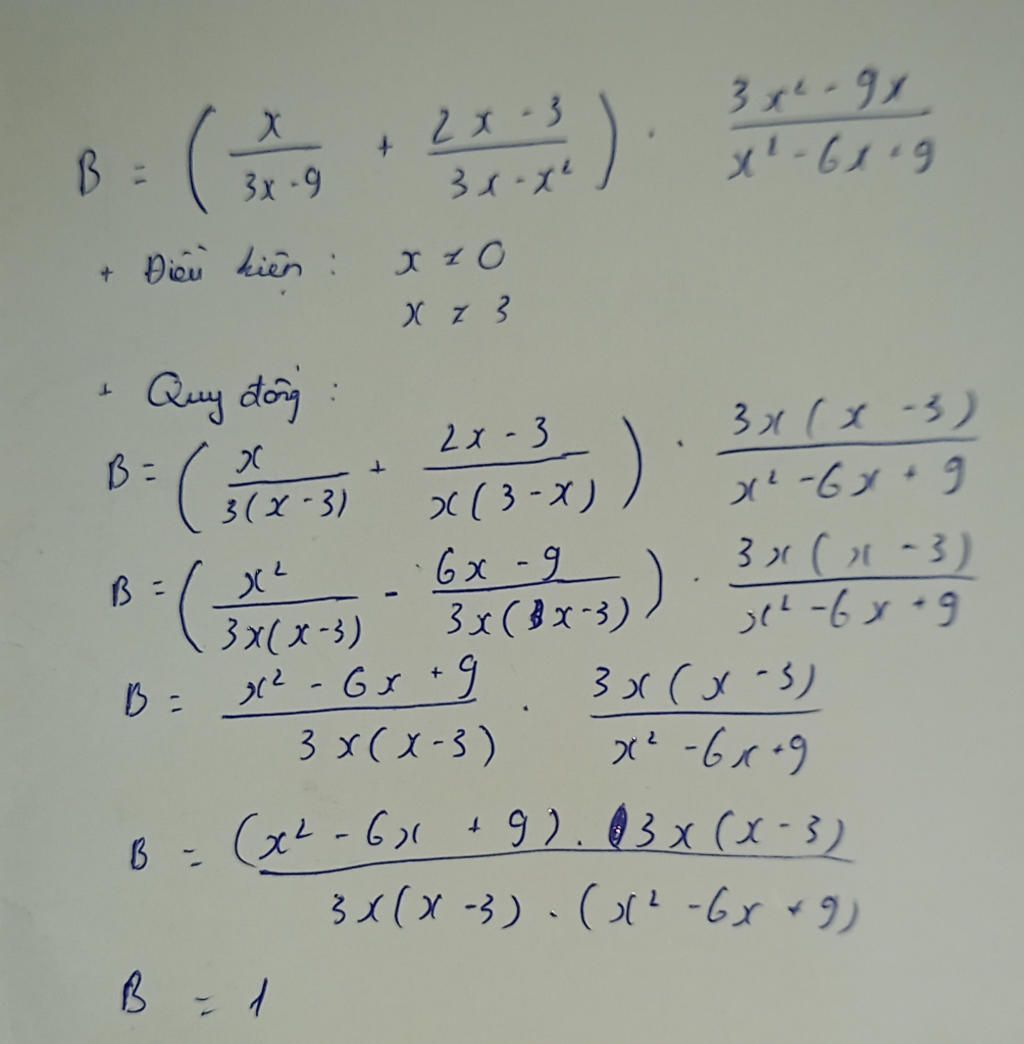 B = ( x/(3x - 9) + (2x - 3)/(3x - x²) ) . (3x² - 9x)/(x² - 6x + 9)
+ Điều kiện : x ≠ 0
x ≠ 3
+ Quy đồng :
B = ( x/(3(x - 3)) + (2x - 3)/(x(3 - x)) ) . (3x(x - 3))/(x² - 6x + 9)
B = ( x²/(3x(x - 3)) - (6x - 9)/(3x(x - 3)) ) . (3x(x - 3))/(x² - 6x + 9)
B = (x² - 6x + 9)/(3x(x - 3)) . (3x(x - 3))/(x² - 6x + 9)
B = ((x² - 6x + 9) . 3x(x - 3))/(3x(x - 3) . (x² - 6x + 9))
B = 1